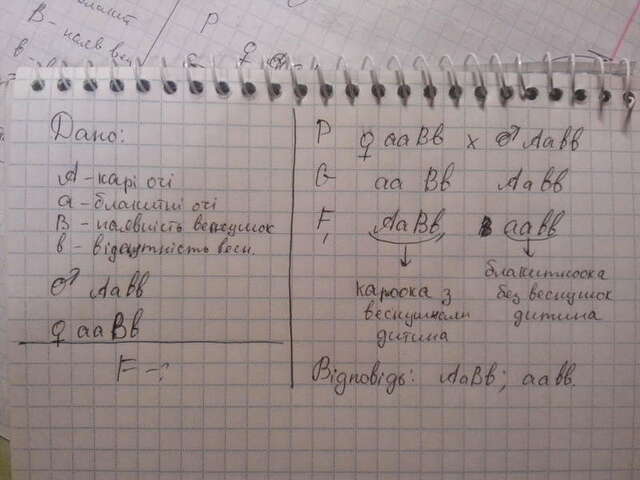 В - наяв вес
в -
Р
♀
Дано:
А - карі очі
а - блакитні очі
В - наявність веснушок
в - відсутність весн.
♂ Аавв
♀ ааВв
F - ?
Р ♀ ааВв х ♂ Аавв
G аа Вв Аавв
F₁ АаВв аавв
кароока з
веснушками
дитина
блакитноока
без веснушок
дитина
Відповідь: АаВв; аавв.